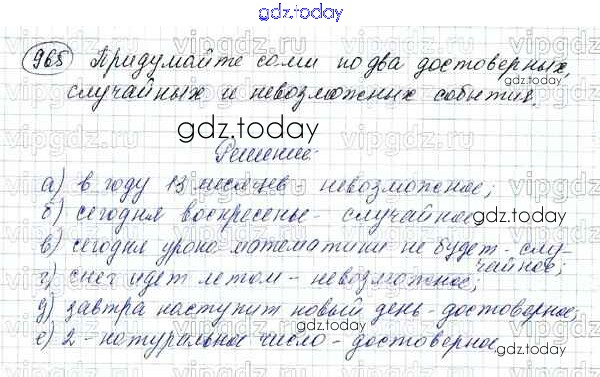 gdz.today
965 Придумайте сами по два достоверных,
случайных и невозможных события.
gdz.today
Решение:
а) в году 13 месяцев невозможное;
б) сегодня воскресенье - случайное
gdz.today
в) сегодня урока математики не будет - слу-
чайное;
г) снег идет летом - невозможное;
д) завтра наступит новый день - достоверное;
е) 2 - натуральное число - достоверное
gdz.today